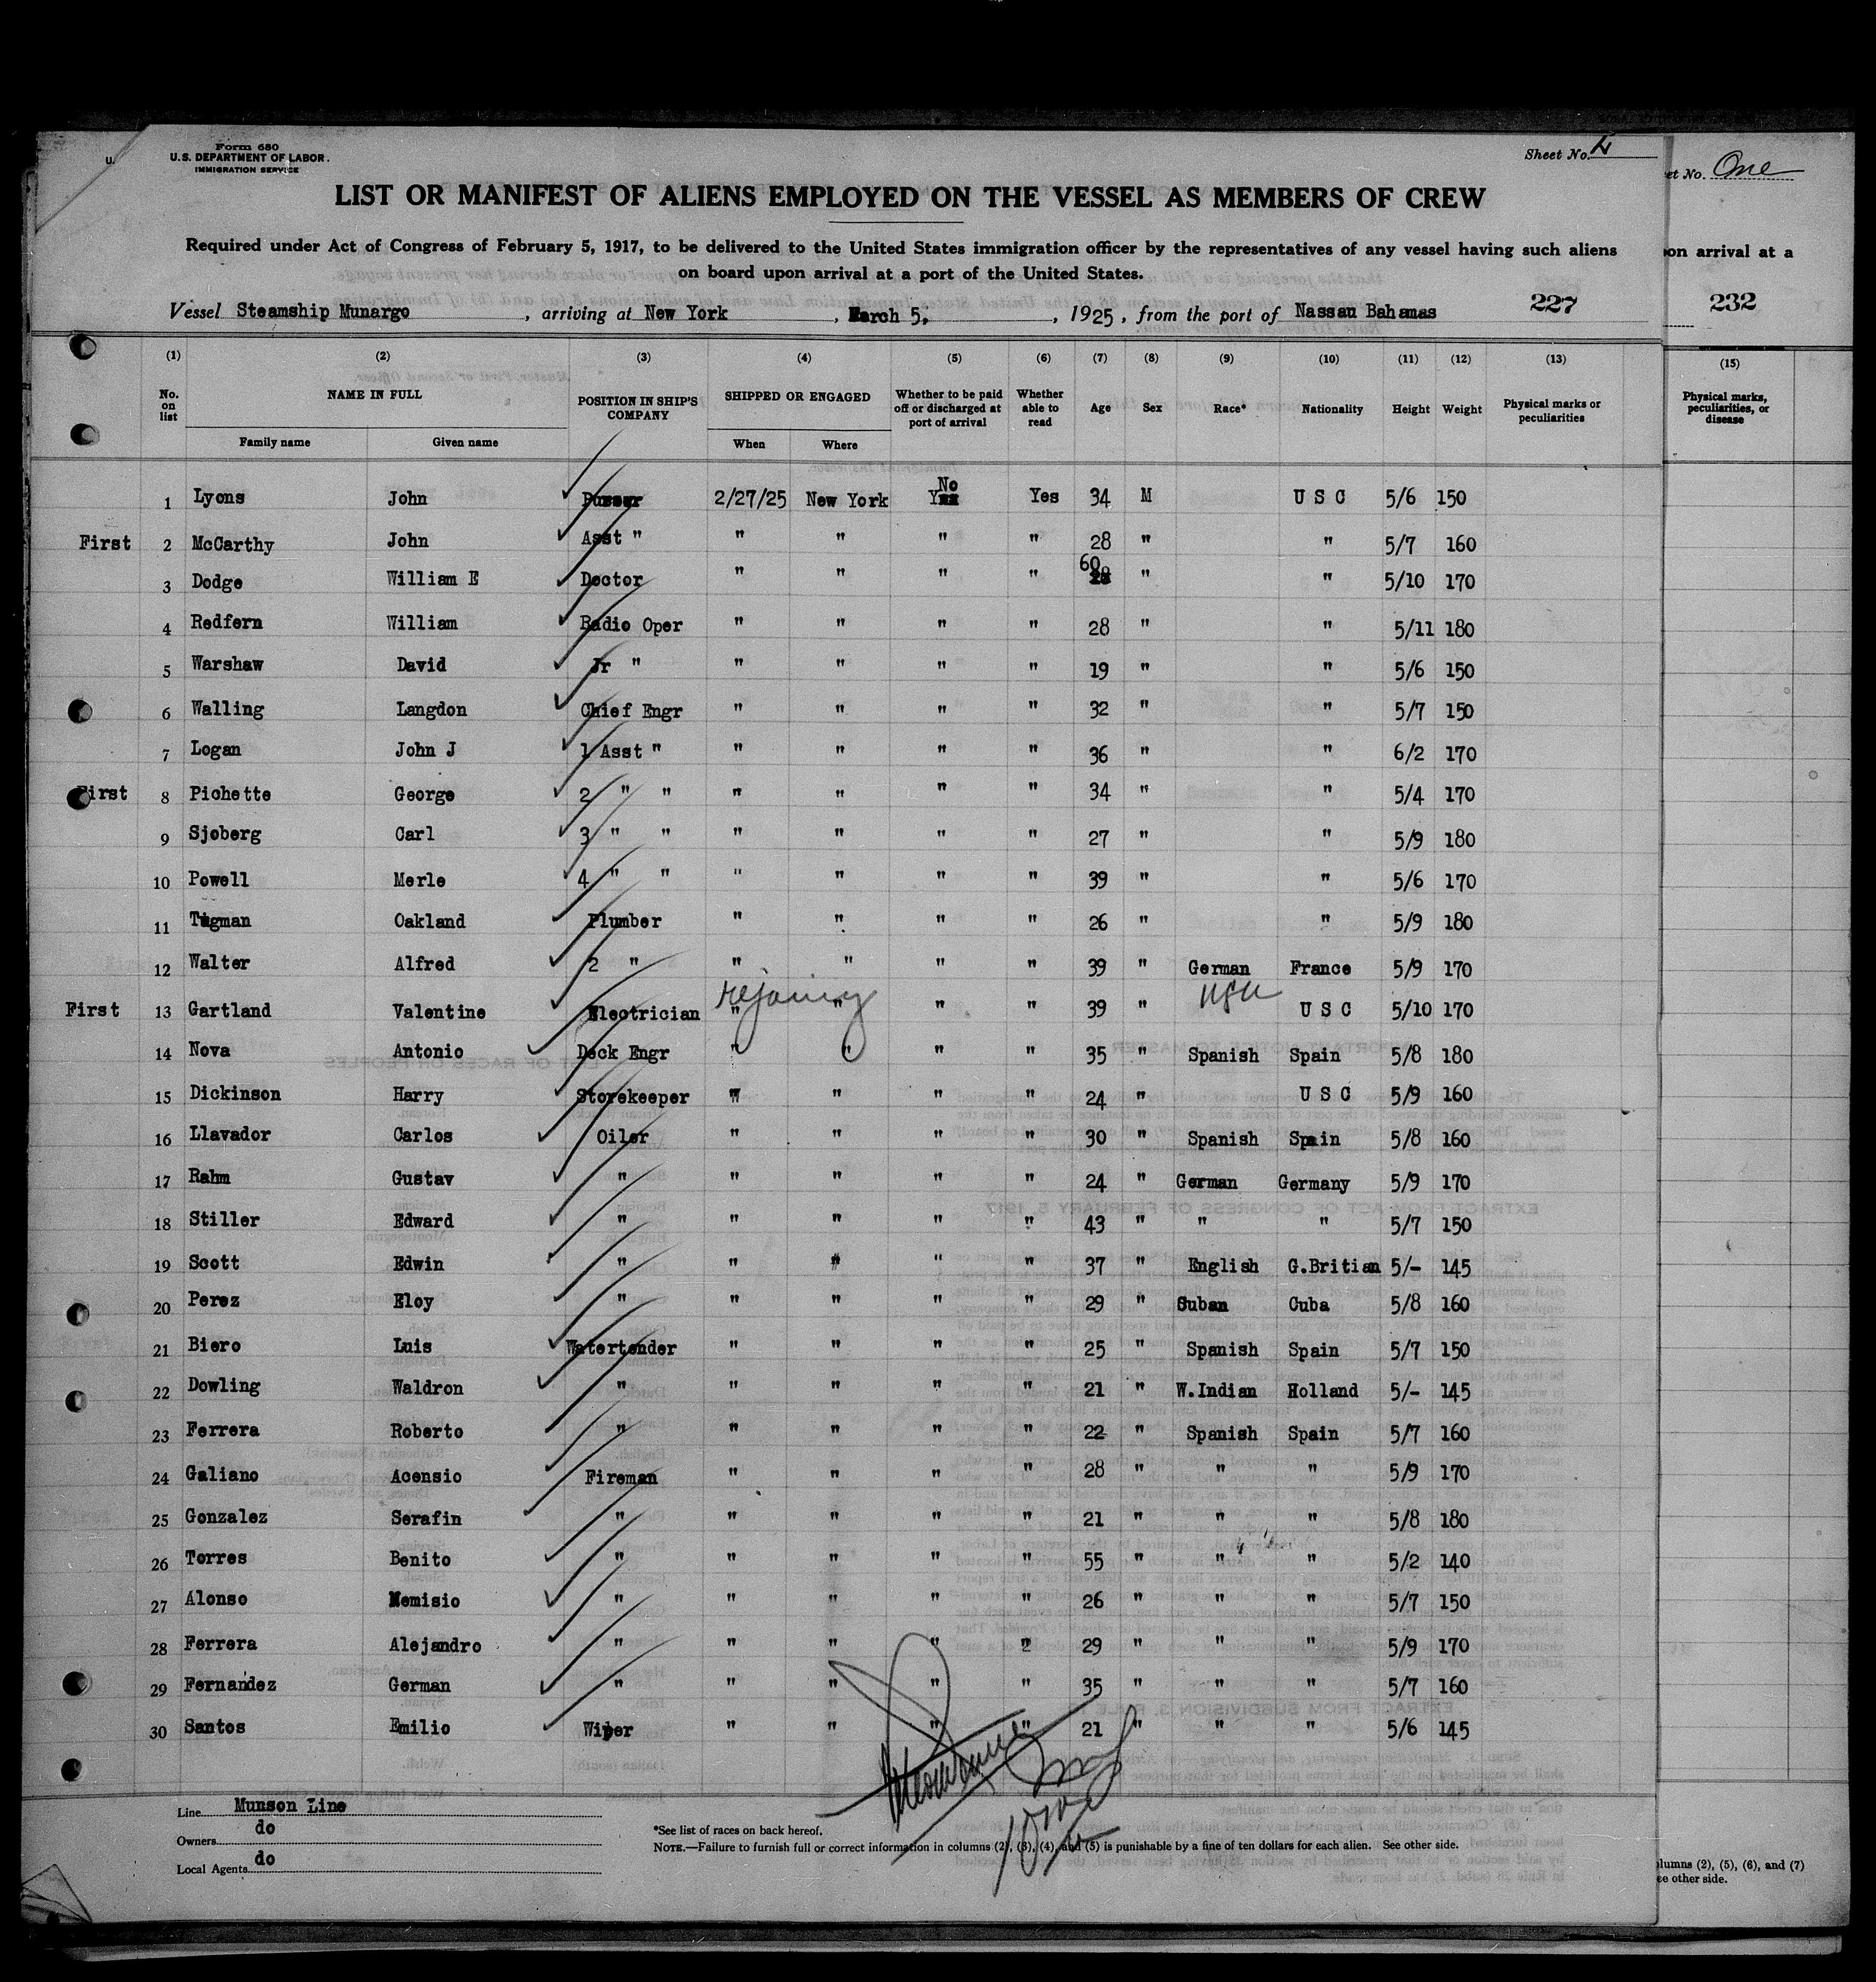 Form 680
U.S. DEPARTMENT OF LABOR.
IMMIGRATION SERVICE
U.
Sheet No.
et No. One
LIST OR MANIFEST OF ALIENS EMPLOYED ON THE VESSEL AS MEMBERS OF CREW
Required under Act of Congress of February 5, 1917, to be delivered to the United States immigration officer by the representatives of any vessel having such aliens
on board upon arrival at a port of the United States.
on arrival at a
Vessel Steamship Munargo, arriving at New York, March 5, 1925, from the port of Nassau Bahamas 227
232
(1) (2) (3) (4) (5) (6) (7) (8) (9) (10) (11) (12) (13) (15)
No. on list NAME IN FULL Family name Given name POSITION IN SHIP'S COMPANY SHIPPED OR ENGAGED When Where Whether to be paid off or discharged at port of arrival Whether able to read Age Sex Race* Nationality Height Weight Physical marks or peculiarities
Physical marks, peculiarities, or disease
1 Lyons John Purser 2/27/25 New York No Yes 34 M U S C 5/6 150
First 2 McCarthy John Asst " " " " " 28 " " 5/7 160
3 Dodge William E Doctor " " " " 60 " " 5/10 170
4 Redfern William Radio Oper " " " " 28 " " 5/11 180
5 Warshaw David Jr " " " " " 19 " " 5/6 150
6 Walling Langdon Chief Engr " " " " 32 " " 5/7 150
7 Logan John J 1 Asst " " " " " 36 " " 6/2 170
First 8 Pichette George 2 " " " " " " 34 " " 5/4 170
9 Sjoberg Carl 3 " " " " " " 27 " " 5/9 180
10 Powell Merle 4 " " " " " " 39 " " 5/6 170
11 Tugman Oakland Plumber " " " " 26 " " 5/9 180
12 Walter Alfred 2 " " " " " 39 " German France 5/9 170
First 13 Gartland Valentine Electrician " " " " 39 " U S C 5/10 170
14 Nova Antonio Deck Engr " " " " 35 " Spanish Spain 5/8 180
15 Dickinson Harry Storekeeper " " " " 24 " U S C 5/9 160
16 Llavador Carlos Oiler " " " " 30 " Spanish Spain 5/8 160
17 Rahm Gustav " " " " " 24 " German Germany 5/9 170
18 Stiller Edward " " " " " 43 " " " 5/7 150
19 Scott Edwin " " " " " 37 " English G.Britian 5/- 145
20 Perez Eloy " " " " " 29 " Cuban Cuba 5/8 160
21 Biero Luis Watertender " " " " 25 " Spanish Spain 5/7 150
22 Dowling Waldron " " " " " 21 " W.Indian Holland 5/- 145
23 Ferrera Roberto " " " " " 22 " Spanish Spain 5/7 160
24 Galiano Acensio Fireman " " " " 28 " " " 5/9 170
25 Gonzalez Serafin " " " " " 21 " " " 5/8 180
26 Torres Benito " " " " " 55 " " " 5/2 140
27 Alonso Nemisio " " " " " 26 " " " 5/7 150
28 Ferrera Alejandro " " " " " 29 " " " 5/9 170
29 Fernandez German " " " " " 35 " " " 5/7 160
30 Santos Emilio Wiper " " " " 21 " " " 5/6 145
Line Munson Line
Owners do
Local Agents do
*See list of races on back hereof.
NOTE.—Failure to furnish full or correct information in columns (2), (3), (4), and (5) is punishable by a fine of ten dollars for each alien. See other side.
lumns (2), (5), (6), and (7)
ee other side.